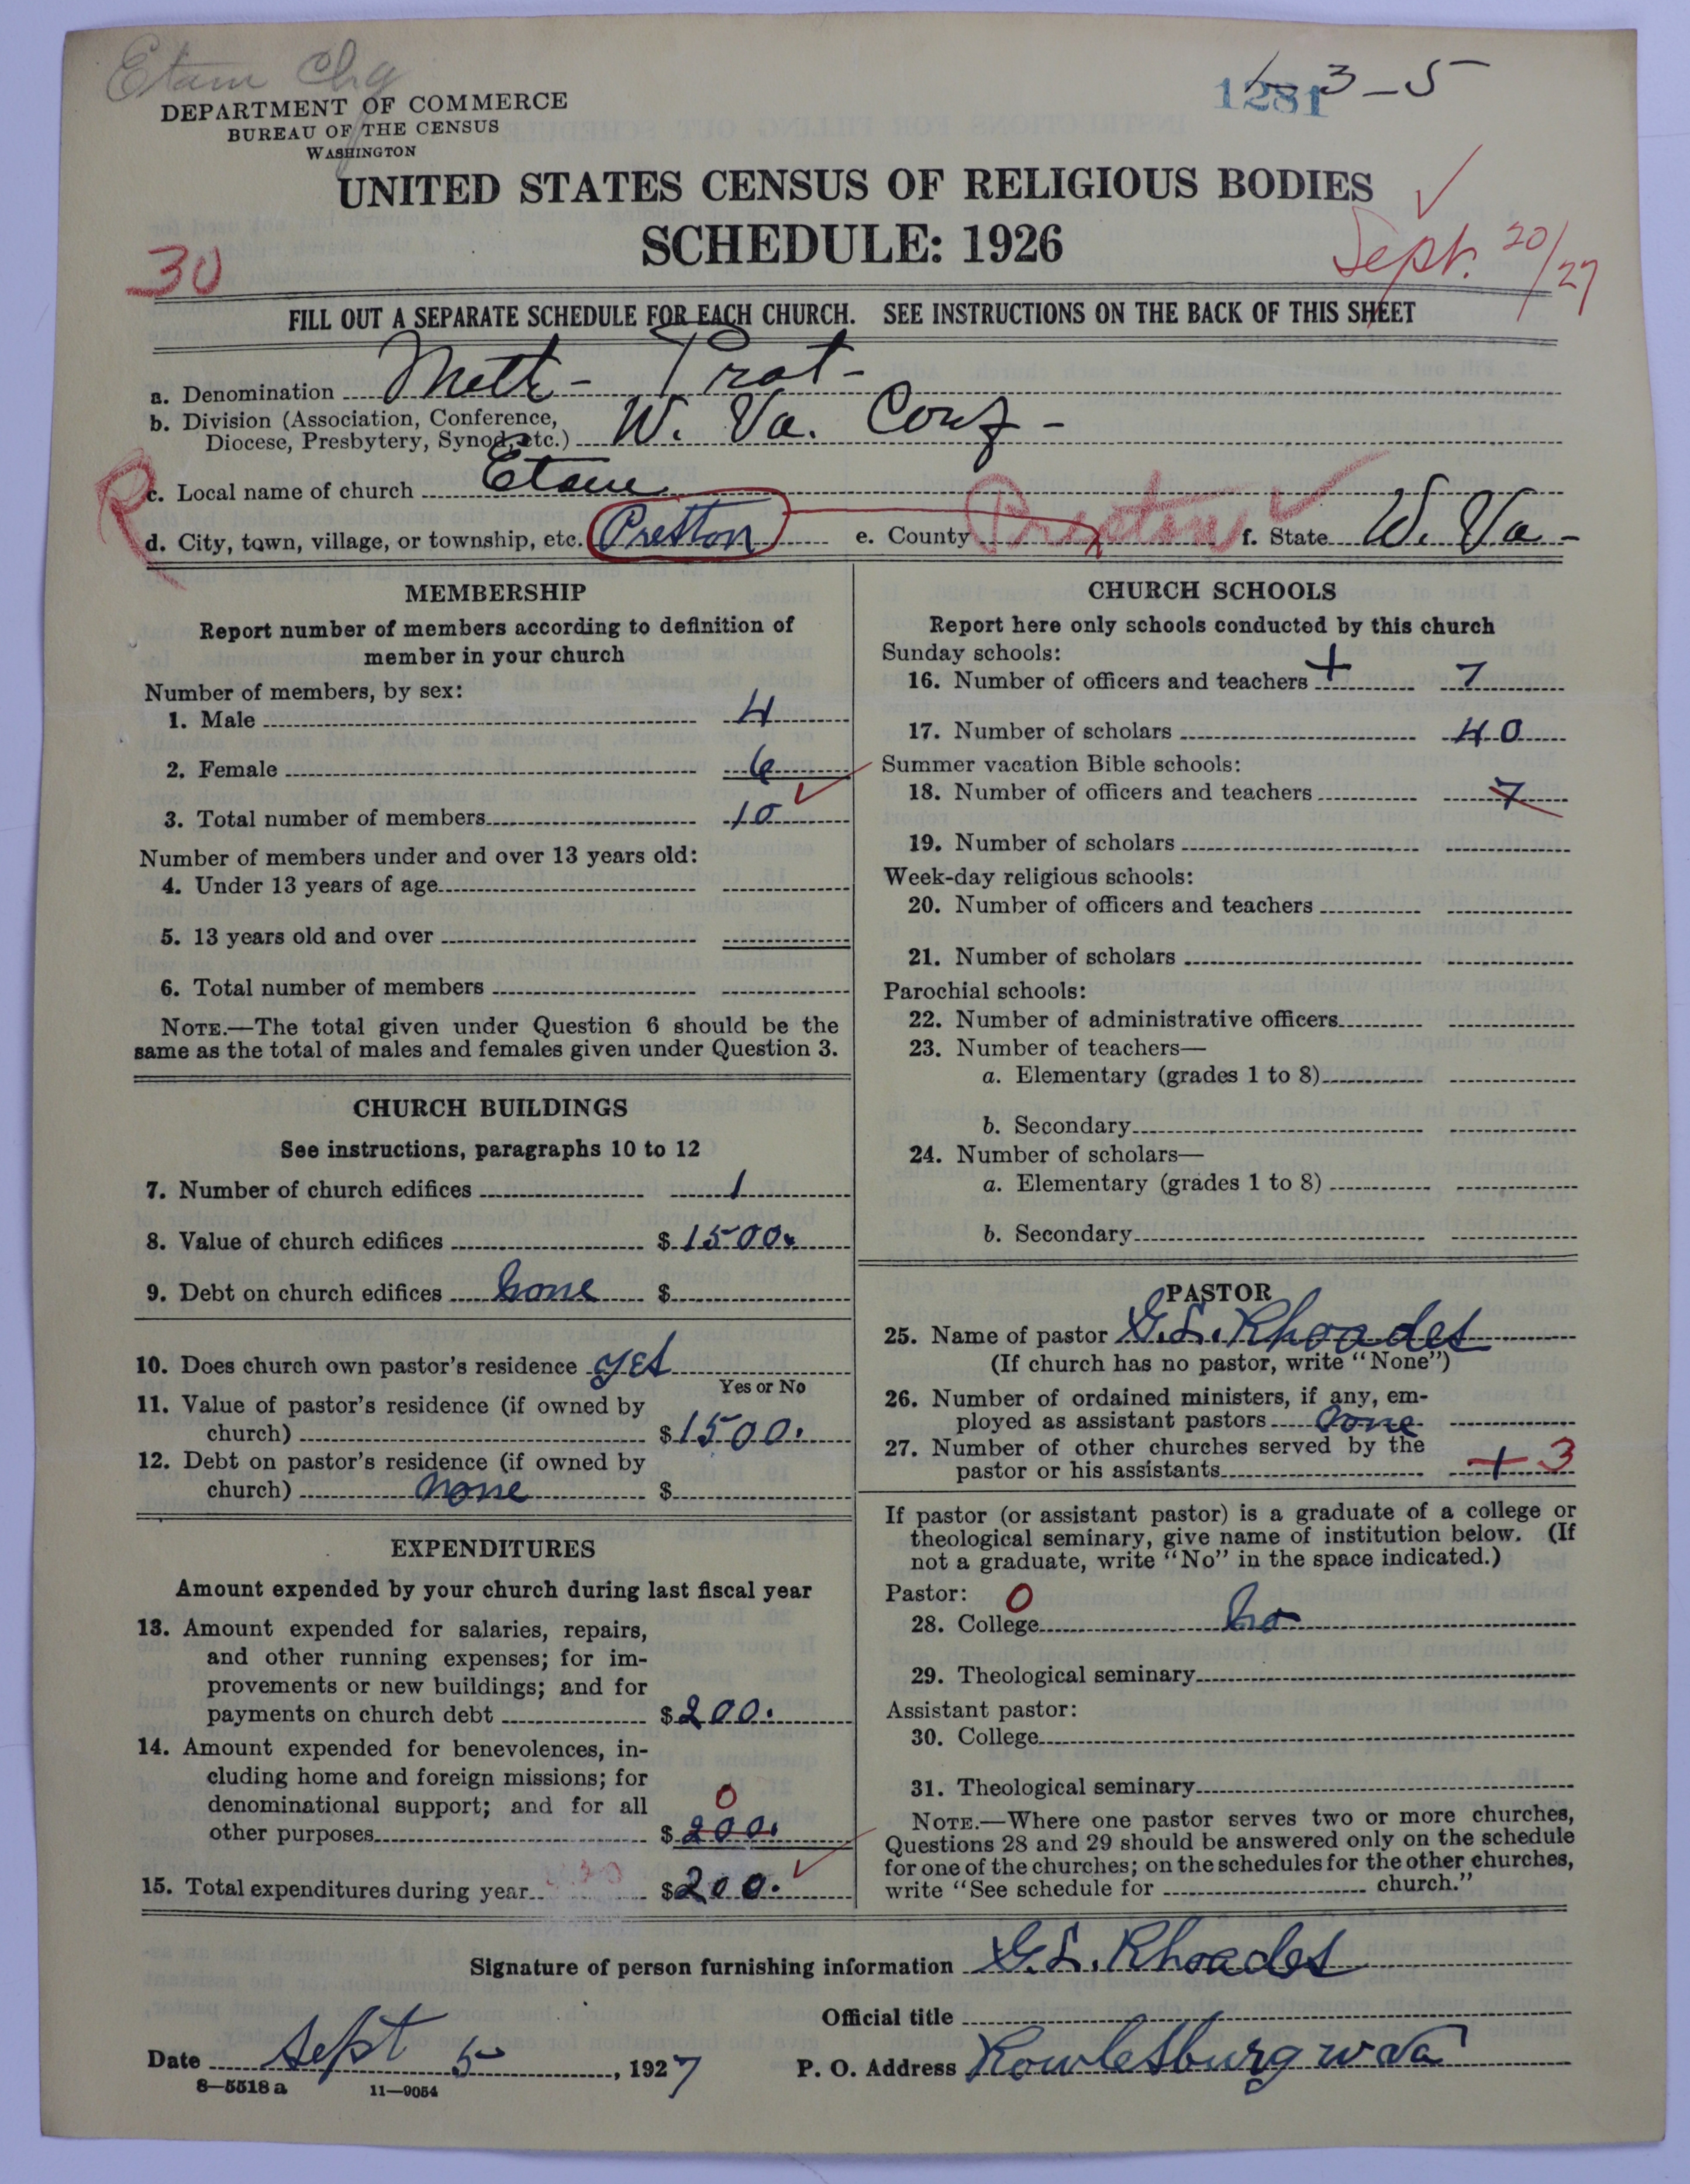 Etam Chg
1281
1-3-5
DEPARTMENT OF COMMERCE
BUREAU OF THE CENSUS
WASHINGTON
UNITED STATES CENSUS OF RELIGIOUS BODIES
SCHEDULE: 1926
30
Sept. 20/27
FILL OUT A SEPARATE SCHEDULE FOR EACH CHURCH. SEE INSTRUCTIONS ON THE BACK OF THIS SHEET
a. Denomination Meth - Prot -
b. Division (Association, Conference,
Diocese, Presbytery, Synod, etc.) W. Va. Conf -
R
c. Local name of church Etam
d. City, town, village, or township, etc. Preston e. County Preston f. State W. Va -
MEMBERSHIP
Report number of members according to definition of
member in your church
Number of members, by sex:
1. Male 4
2. Female 6
3. Total number of members 10
Number of members under and over 13 years old:
4. Under 13 years of age
5. 13 years old and over
6. Total number of members
NOTE.—The total given under Question 6 should be the
same as the total of males and females given under Question 3.
CHURCH BUILDINGS
See instructions, paragraphs 10 to 12
7. Number of church edifices 1
8. Value of church edifices $ 1500.
9. Debt on church edifices none $
10. Does church own pastor's residence yes
Yes or No
11. Value of pastor's residence (if owned by
church) $ 1500.
12. Debt on pastor's residence (if owned by
church) none $
EXPENDITURES
Amount expended by your church during last fiscal year
13. Amount expended for salaries, repairs,
and other running expenses; for im-
provements or new buildings; and for
payments on church debt $ 200.
14. Amount expended for benevolences, in-
cluding home and foreign missions; for
denominational support; and for all 0
other purposes $ 200.
15. Total expenditures during year $ 200.
CHURCH SCHOOLS
Report here only schools conducted by this church
Sunday schools:
16. Number of officers and teachers + 7
17. Number of scholars 40
Summer vacation Bible schools:
18. Number of officers and teachers 7
19. Number of scholars
Week-day religious schools:
20. Number of officers and teachers
21. Number of scholars
Parochial schools:
22. Number of administrative officers
23. Number of teachers—
a. Elementary (grades 1 to 8)
b. Secondary
24. Number of scholars—
a. Elementary (grades 1 to 8)
b. Secondary
PASTOR
25. Name of pastor G. L. Rhoades
(If church has no pastor, write "None")
26. Number of ordained ministers, if any, em-
ployed as assistant pastors none
27. Number of other churches served by the
pastor or his assistants + 3
If pastor (or assistant pastor) is a graduate of a college or
theological seminary, give name of institution below. (If
not a graduate, write "No" in the space indicated.)
Pastor: 0
28. College no
29. Theological seminary
Assistant pastor:
30. College
31. Theological seminary
NOTE.—Where one pastor serves two or more churches,
Questions 28 and 29 should be answered only on the schedule
for one of the churches; on the schedules for the other churches,
write "See schedule for church."
Signature of person furnishing information G. L. Rhoades
Official title
Date Sept 5, 1927 P. O. Address Rowlesburg W Va
8—5518 a 11—9054